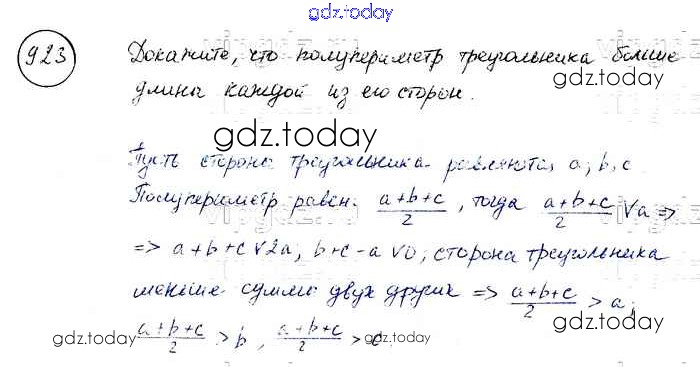 gdz.today
923
Докажите, что полупериметр треугольника больше
gdz.today
длины каждой из его сторон.
gdz.today
Пусть стороны треугольника равняются a, b, c
Полупериметр равен (a+b+c)/2, тогда (a+b+c)/2 V a =>
=> a+b+c V 2a; b+c-a V 0; сторона треугольника
меньше суммы двух других => (a+b+c)/2 > a;
gdz.today
gdz.today
(a+b+c)/2 > b, (a+b+c)/2 > c.
gdz.today
gdz.today